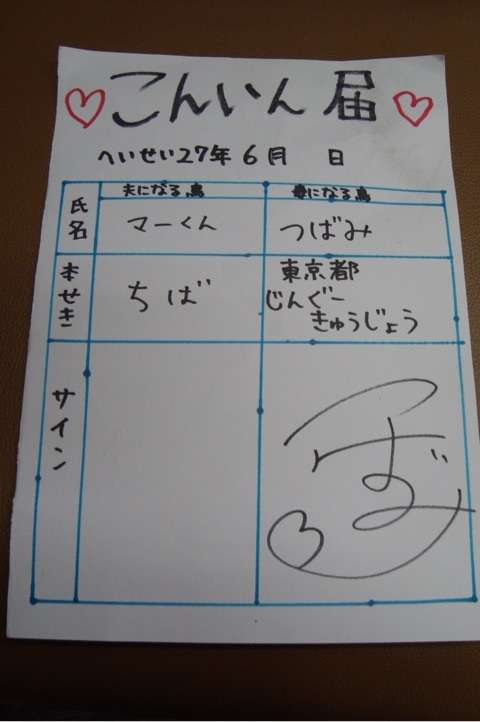 こんいん届
へいせい27年6月 日
夫になる鳥 妻になる鳥
氏名 マーくん つばみ
本せき ちば 東京都
じんぐー
きゅうじょう
サイン